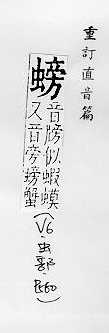 重訂直音篇
螃
音螃似蝦蟆
又音旁螃蟹
(V6.虫部.P.60)